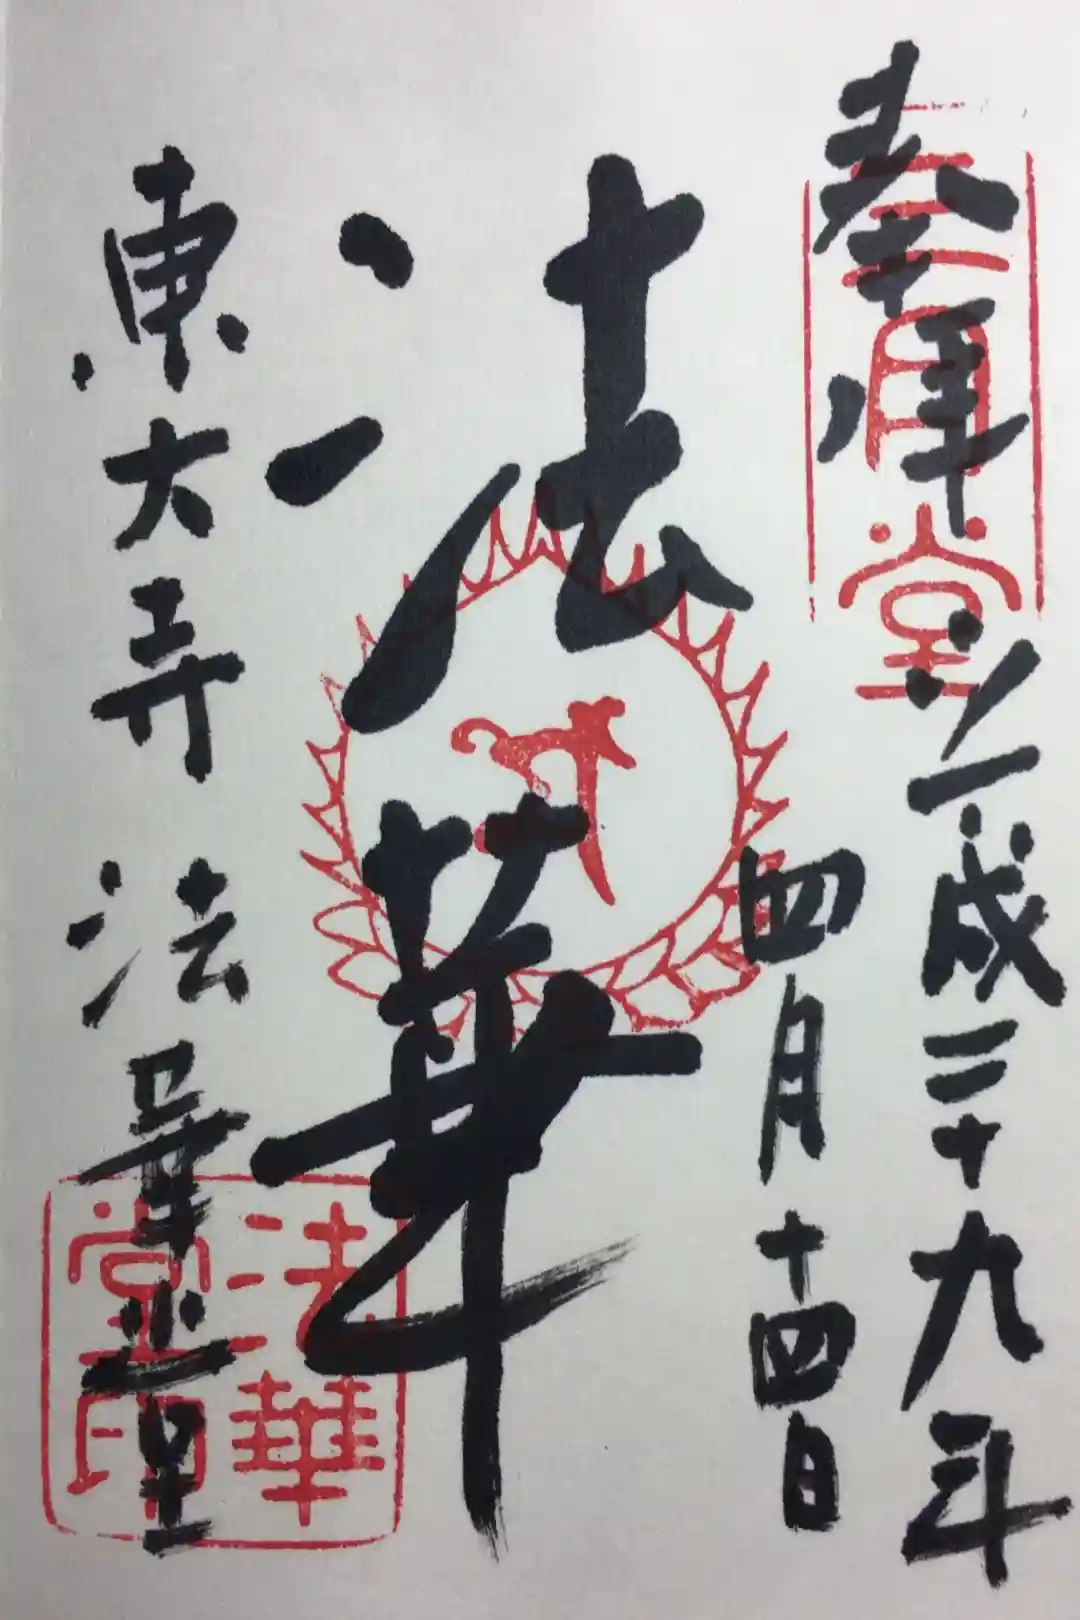 奉拝
三月堂
平成二十九年
四月十四日
法華
東大寺法華堂
法華
堂印